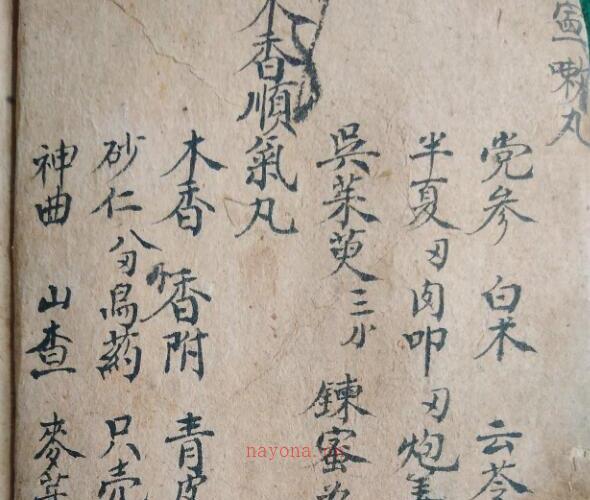 嗽丸
党参 白术 云苓
半夏 刃 肉叩 刃 炮
吳茱萸 三分 鍊蜜為
木香順氣丸
木香 香附 青皮
砂仁 八分 烏药 只壳
神曲 山查 麥芽
nayona.cn